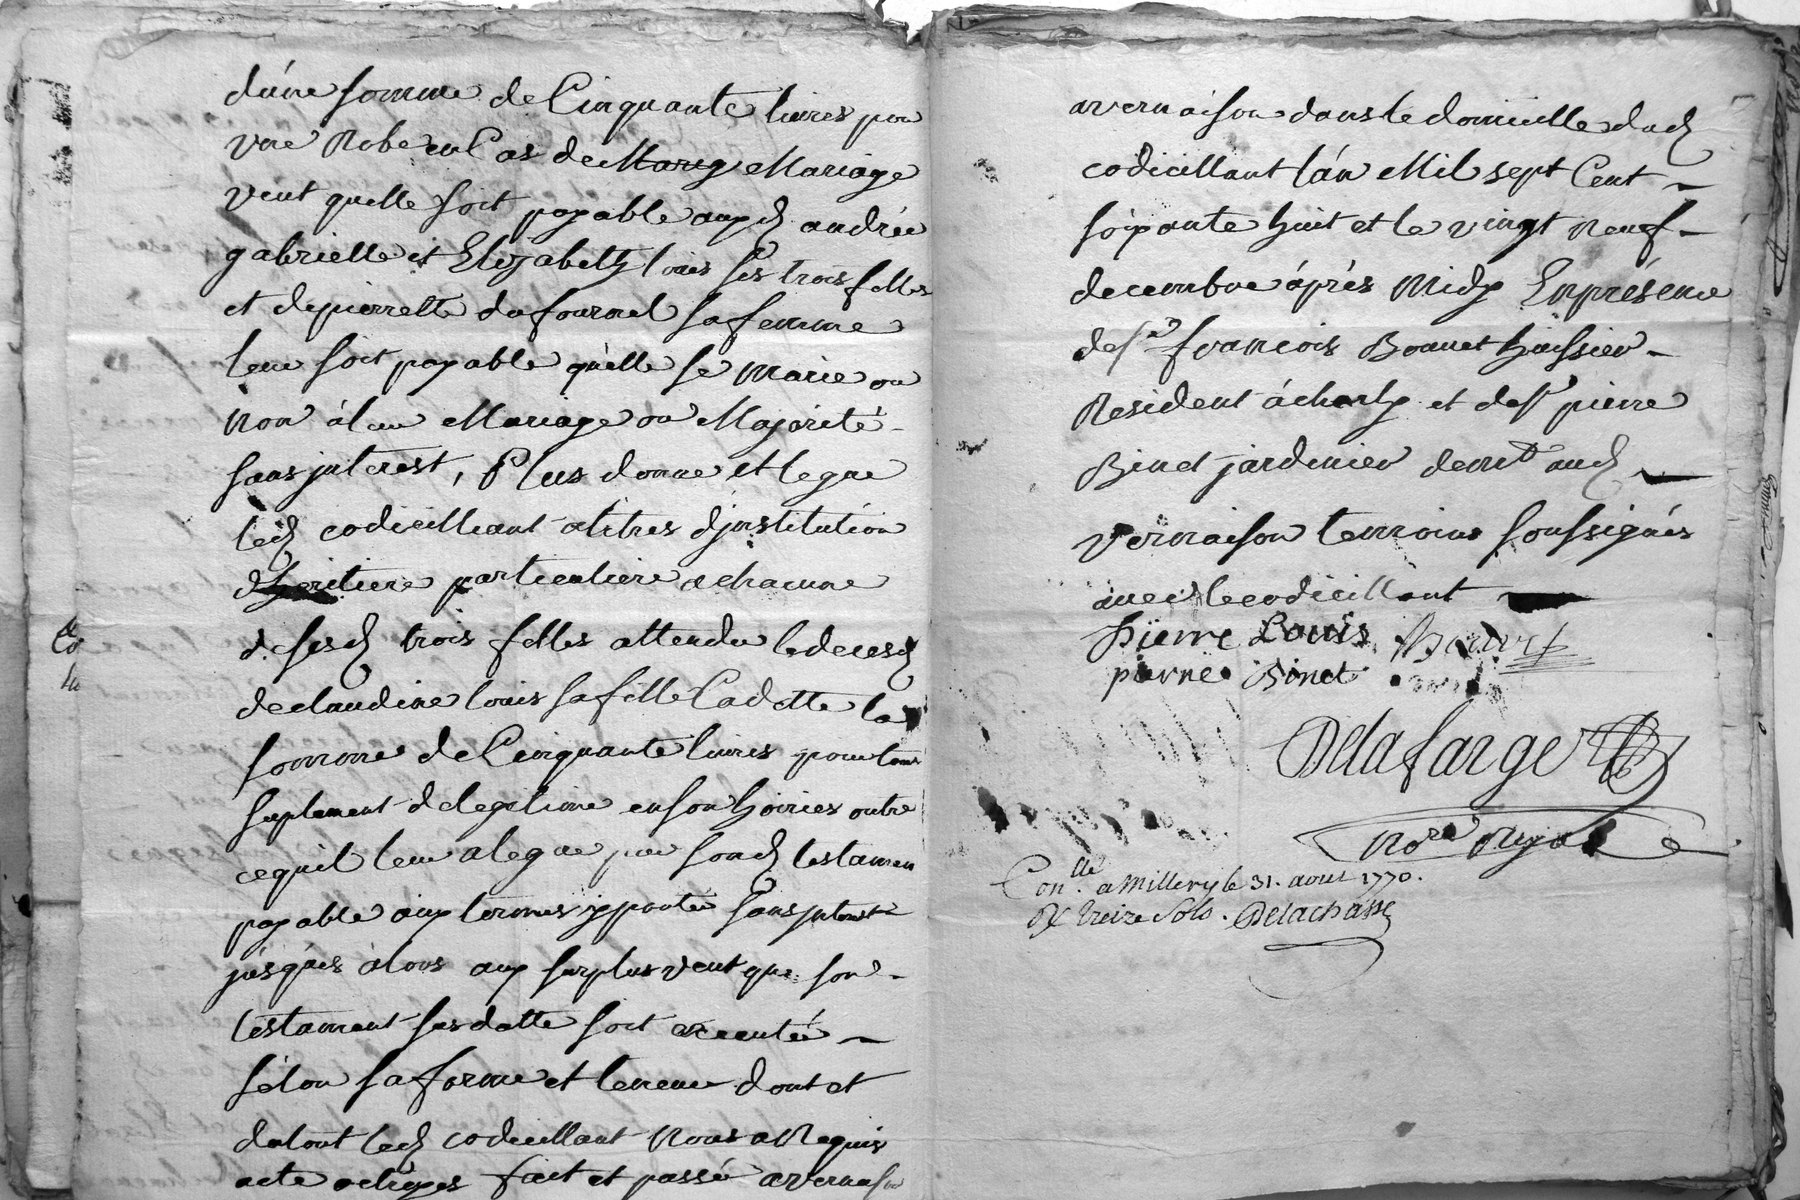 d'une somme de Cinquante livres pou
une Robe en Cas de Mary Mariage
veut quelle soit payable auxd andrée
gabrielle et Elizabeth louis ses trois filles
et de pierrette dufournel sa femme
leur soit payable quelle se marie ou
non à leur Mariage ou Majorité
sans interest, Plus donne et legue
led codicillant atitres d'institution
d'heritiere particuliere a chacune
de sesd trois filles attendu le deces
de claudine louis sa fille Cadette la
somme de Cinquante livres pour tous
suplement de legitime en son hoiries outre
cequil leur a legue par sond testamen
payable aux termes y portés sans interest
jusques alors aux surplus veut que son
testament susdatte soit executée
selon sa forme et teneur dont et
dutout led codicillant Nous a Requis
acte octroyes fait et passé a vernaison
avernaison dans le domicille dud
codicillant l'an Mil sept Cent
soixante huit et le vingt neuf
decembre après Midy En présence
de sr françois Bonnet huissier
Resident à charly et de sr pierre
Binet jardinier demt aud
vernaison temoins soussignés
avec le codicillant
Pierre Louis Bonnet
pierre Binet
Delafarge
Nore Royal
Conlle a Millery le 31. aout 1770.
R treize sols. Delachasse